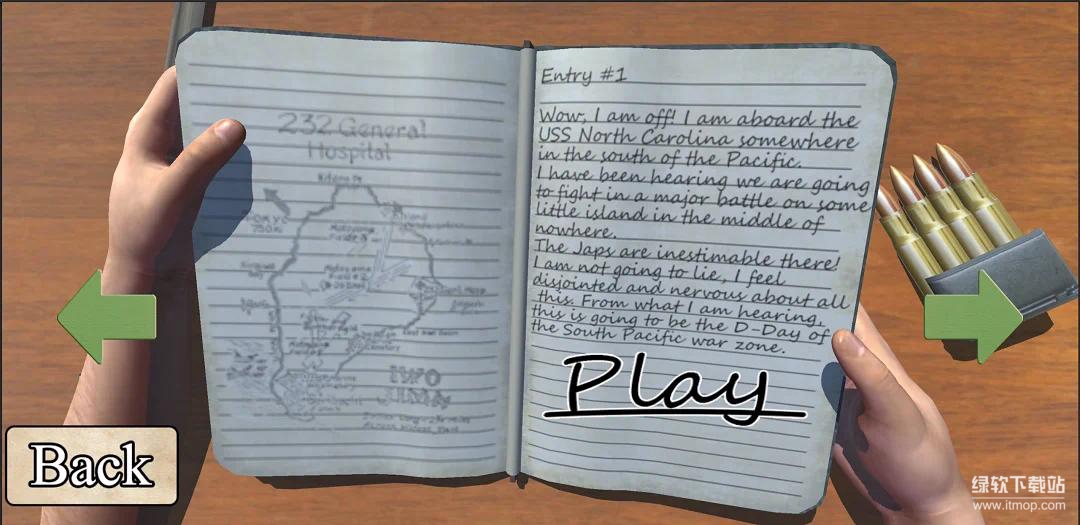 232 General
Hospital
Kitano Pt
Motoyama
Motoyama
East Boat Basin
Iwo
Jima
Entry #1
Wow, I am off! I am aboard the
USS North Carolina somewhere
in the south of the Pacific.
I have been hearing we are going
to fight in a major battle on some
little island in the middle of
nowhere.
The Japs are inestimable there!
I am not going to lie, I feel
disjointed and nervous about all
this. From what I am hearing,
this is going to be the D-Day of
the South Pacific war zone.
Play
Back
绿软下载站
www.itmop.com